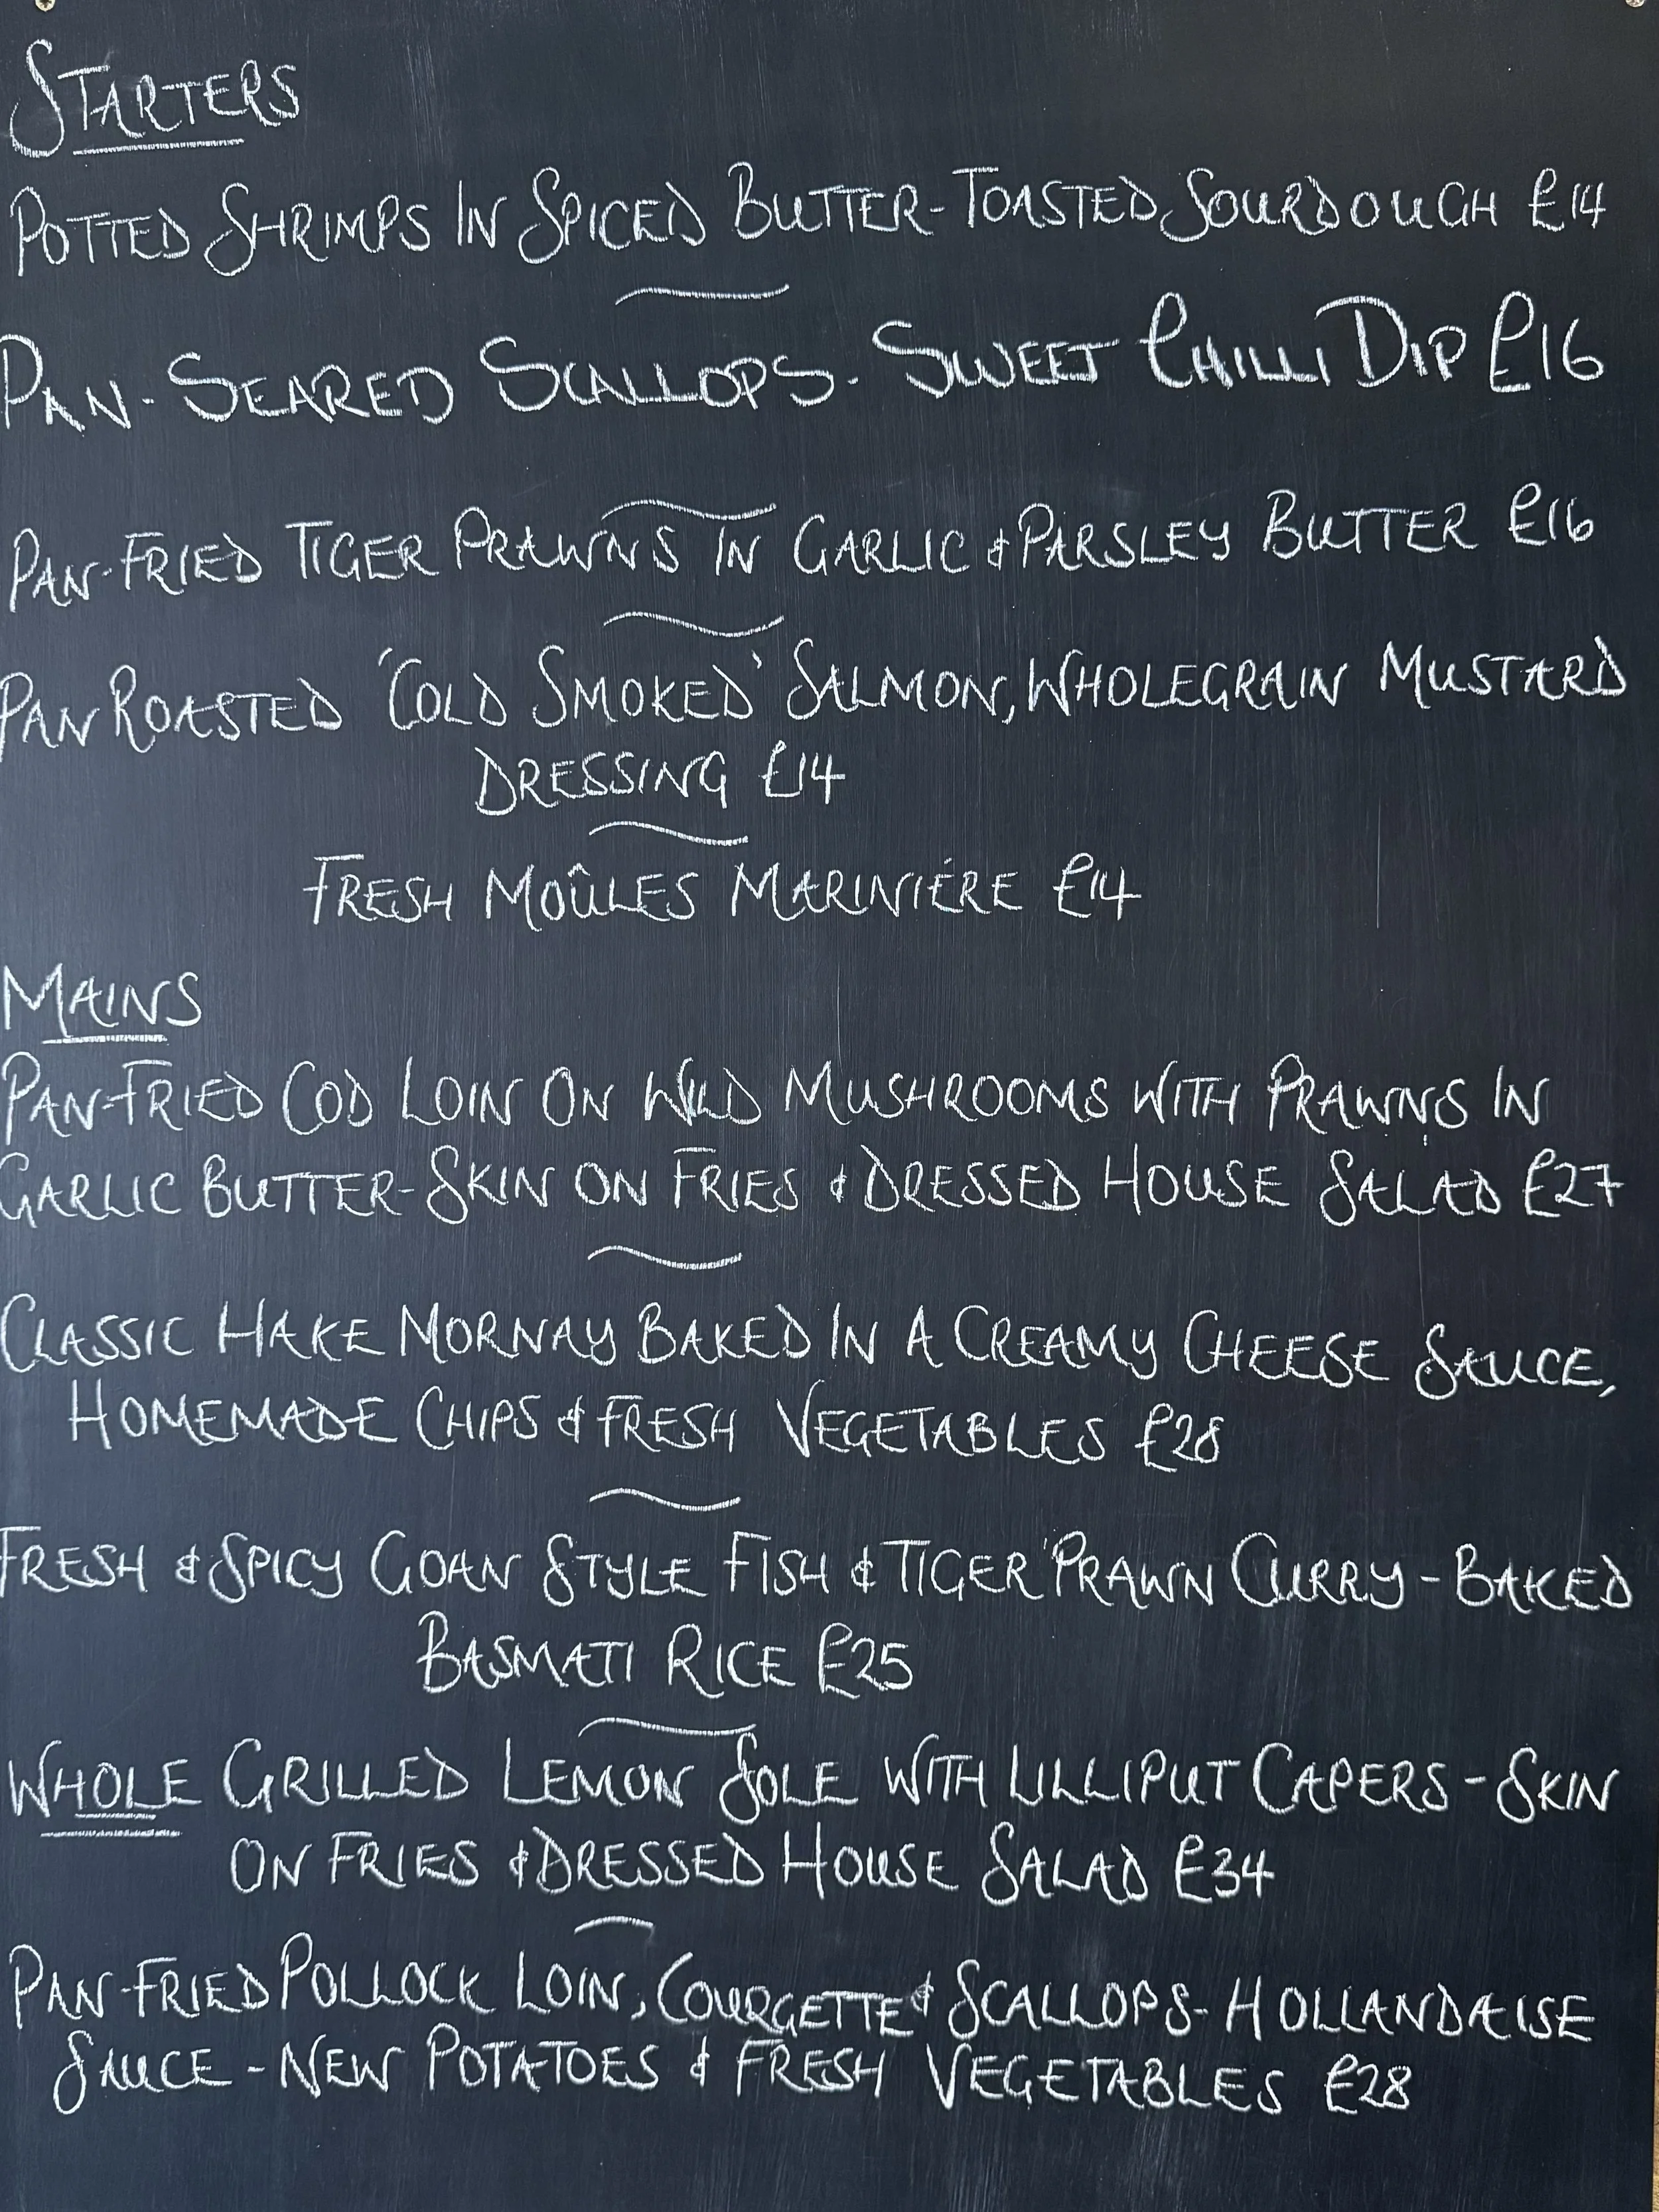 STARTERS
POTTED SHRIMPS IN SPICED BUTTER-TOASTED SOURDOUGH £14
PAN-SEARED SCALLOPS - SWEET CHILLI DIP £16
PAN-FRIED TIGER PRAWNS IN GARLIC & PARSLEY BUTTER £16
PAN ROASTED 'COLD SMOKED' SALMON, WHOLEGRAIN MUSTARD
DRESSING £14
FRESH MOÛLES MARINIÉRE £14
MAINS
PAN-FRIED COD LOIN ON WILD MUSHROOMS WITH PRAWNS IN
GARLIC BUTTER-SKIN ON FRIES & DRESSED HOUSE SALAD £27
CLASSIC HAKE MORNAY BAKED IN A CREAMY CHEESE SAUCE,
HOMEMADE CHIPS & FRESH VEGETABLES £28
FRESH & SPICY GOAN STYLE FISH & TIGER PRAWN CURRY - BAKED
BASMATI RICE £25
WHOLE GRILLED LEMON SOLE WITH LILLIPUT CAPERS - SKIN
ON FRIES & DRESSED HOUSE SALAD £34
PAN-FRIED POLLOCK LOIN, COURGETTE & SCALLOPS - HOLLANDAISE
SAUCE - NEW POTATOES & FRESH VEGETABLES £28